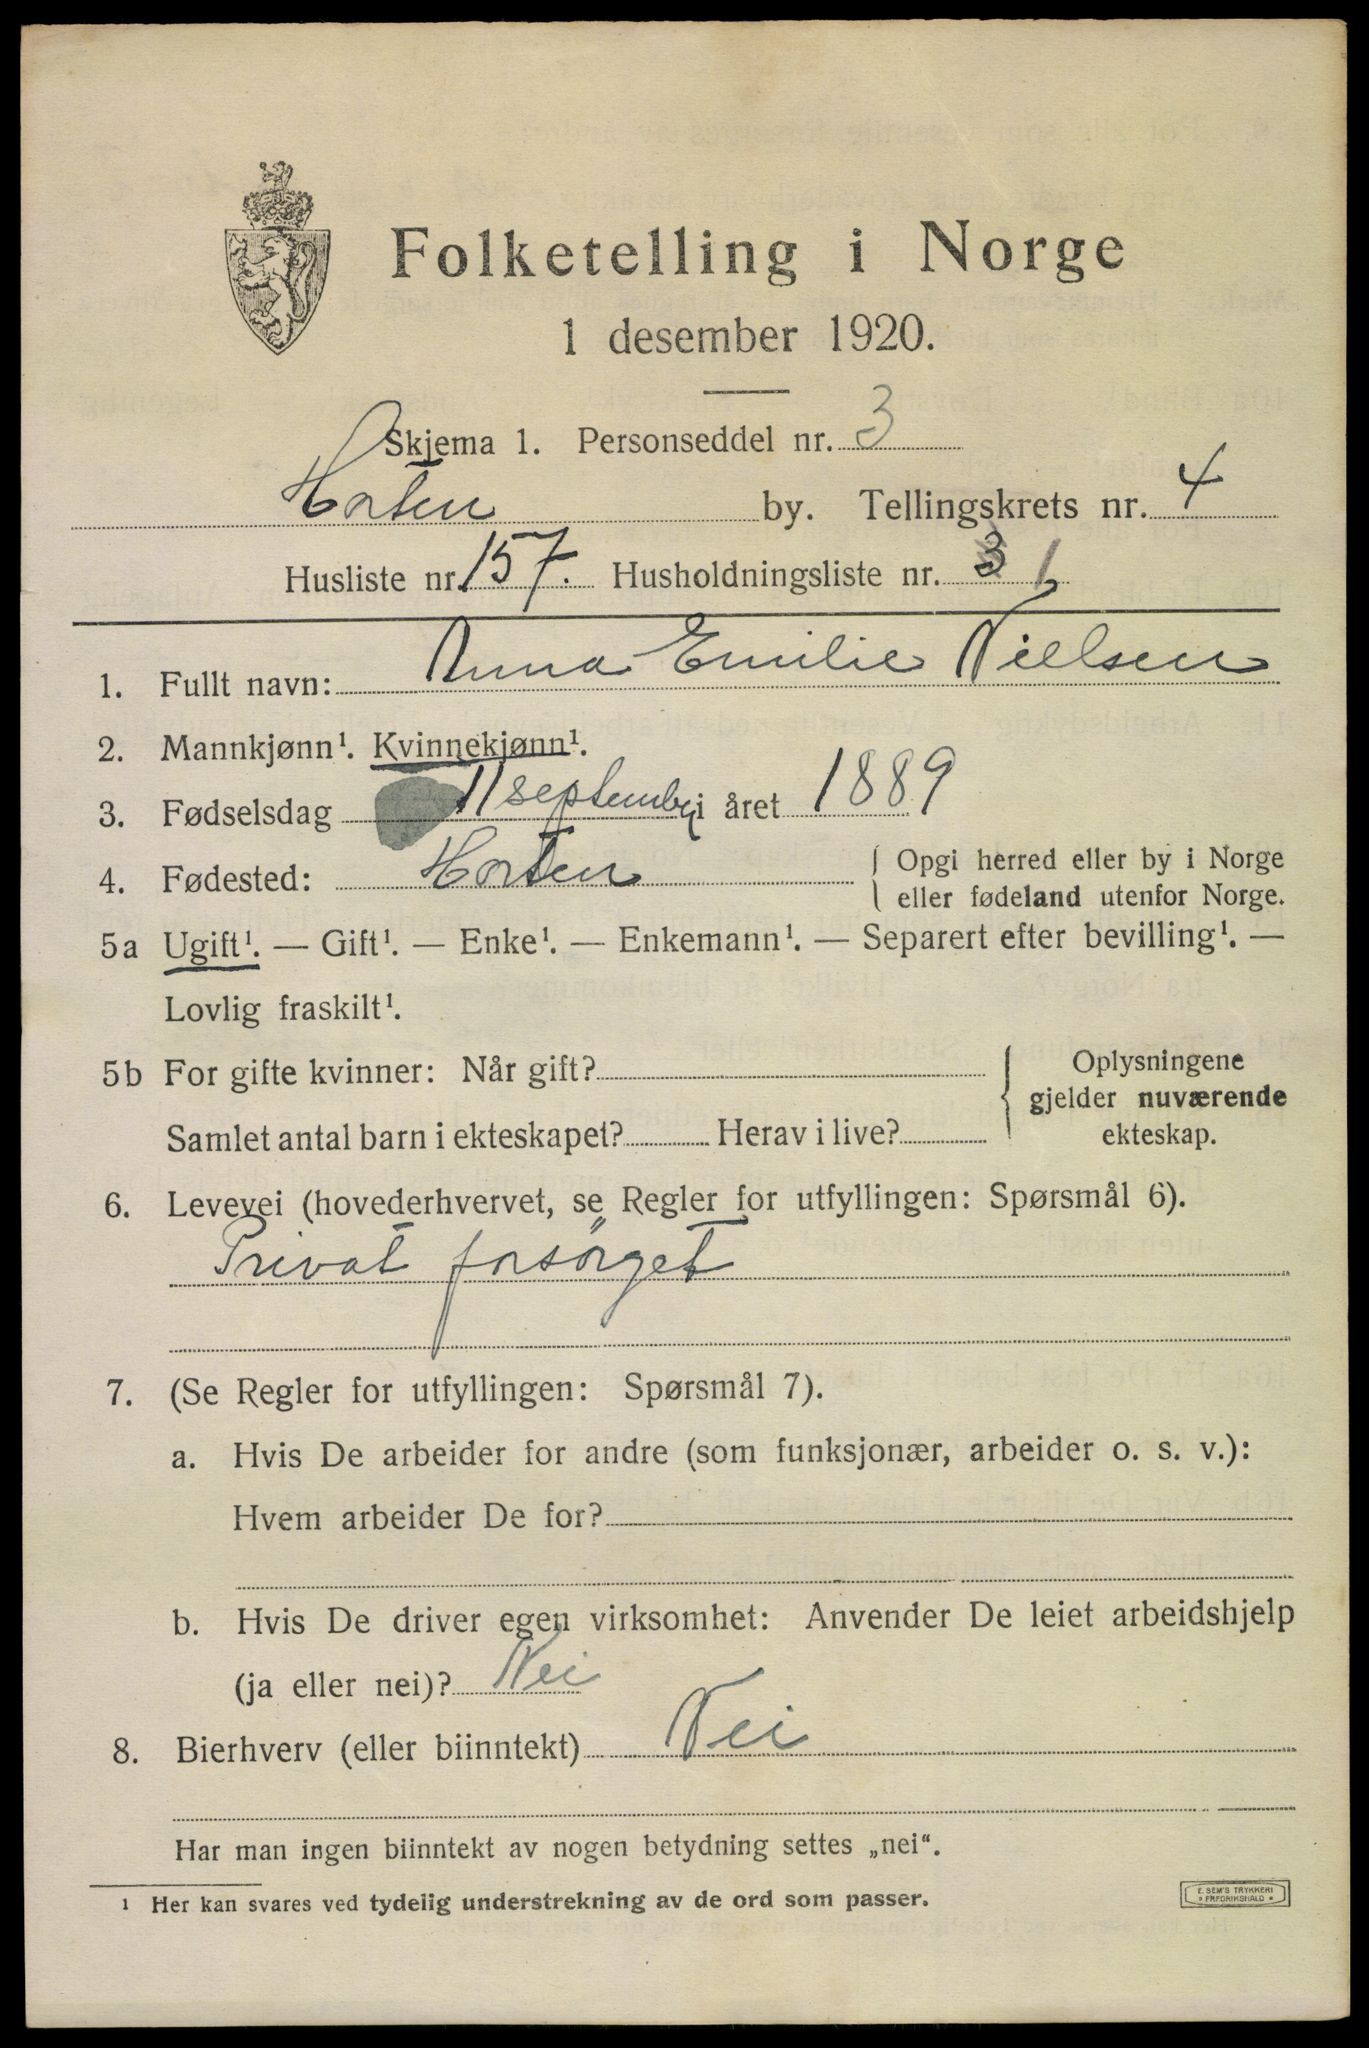 Folketelling i Norge
1 desember 1920.
Skjema 1. Personseddel nr. 3
Horten by. Tellingskrets nr. 4
Husliste nr. 157. Husholdningsliste nr. 3 1
1. Fullt navn: Anna Emilie Nielsen
2. Mannkjønn¹. Kvinnekjønn¹.
3. Fødselsdag 11 september i året 1889
4. Fødested: Horten { Opgi herred eller by i Norge
eller fødeland utenfor Norge.
5a Ugift¹. — Gift¹. — Enke¹. — Enkemann¹. — Separert efter bevilling¹. —
Lovlig fraskilt¹.
5b For gifte kvinner: Når gift? { Oplysningene
gjelder nuværende
Samlet antal barn i ekteskapet? Herav i live? ekteskap.
6. Levevei (hovederhvervet, se Regler for utfyllingen: Spørsmål 6).
Privat forsörget
7. (Se Regler for utfyllingen: Spørsmål 7).
a. Hvis De arbeider for andre (som funksjonær, arbeider o. s. v.):
Hvem arbeider De for?
b. Hvis De driver egen virksomhet: Anvender De leiet arbeidshjelp
(ja eller nei)? Nei
8. Bierhverv (eller biinntekt) Nei
Har man ingen biinntekt av nogen betydning settes „nei“.
¹ Her kan svares ved tydelig understrekning av de ord som passer.
E. SEM'S TRYKKERI
FREDRIKSHALD